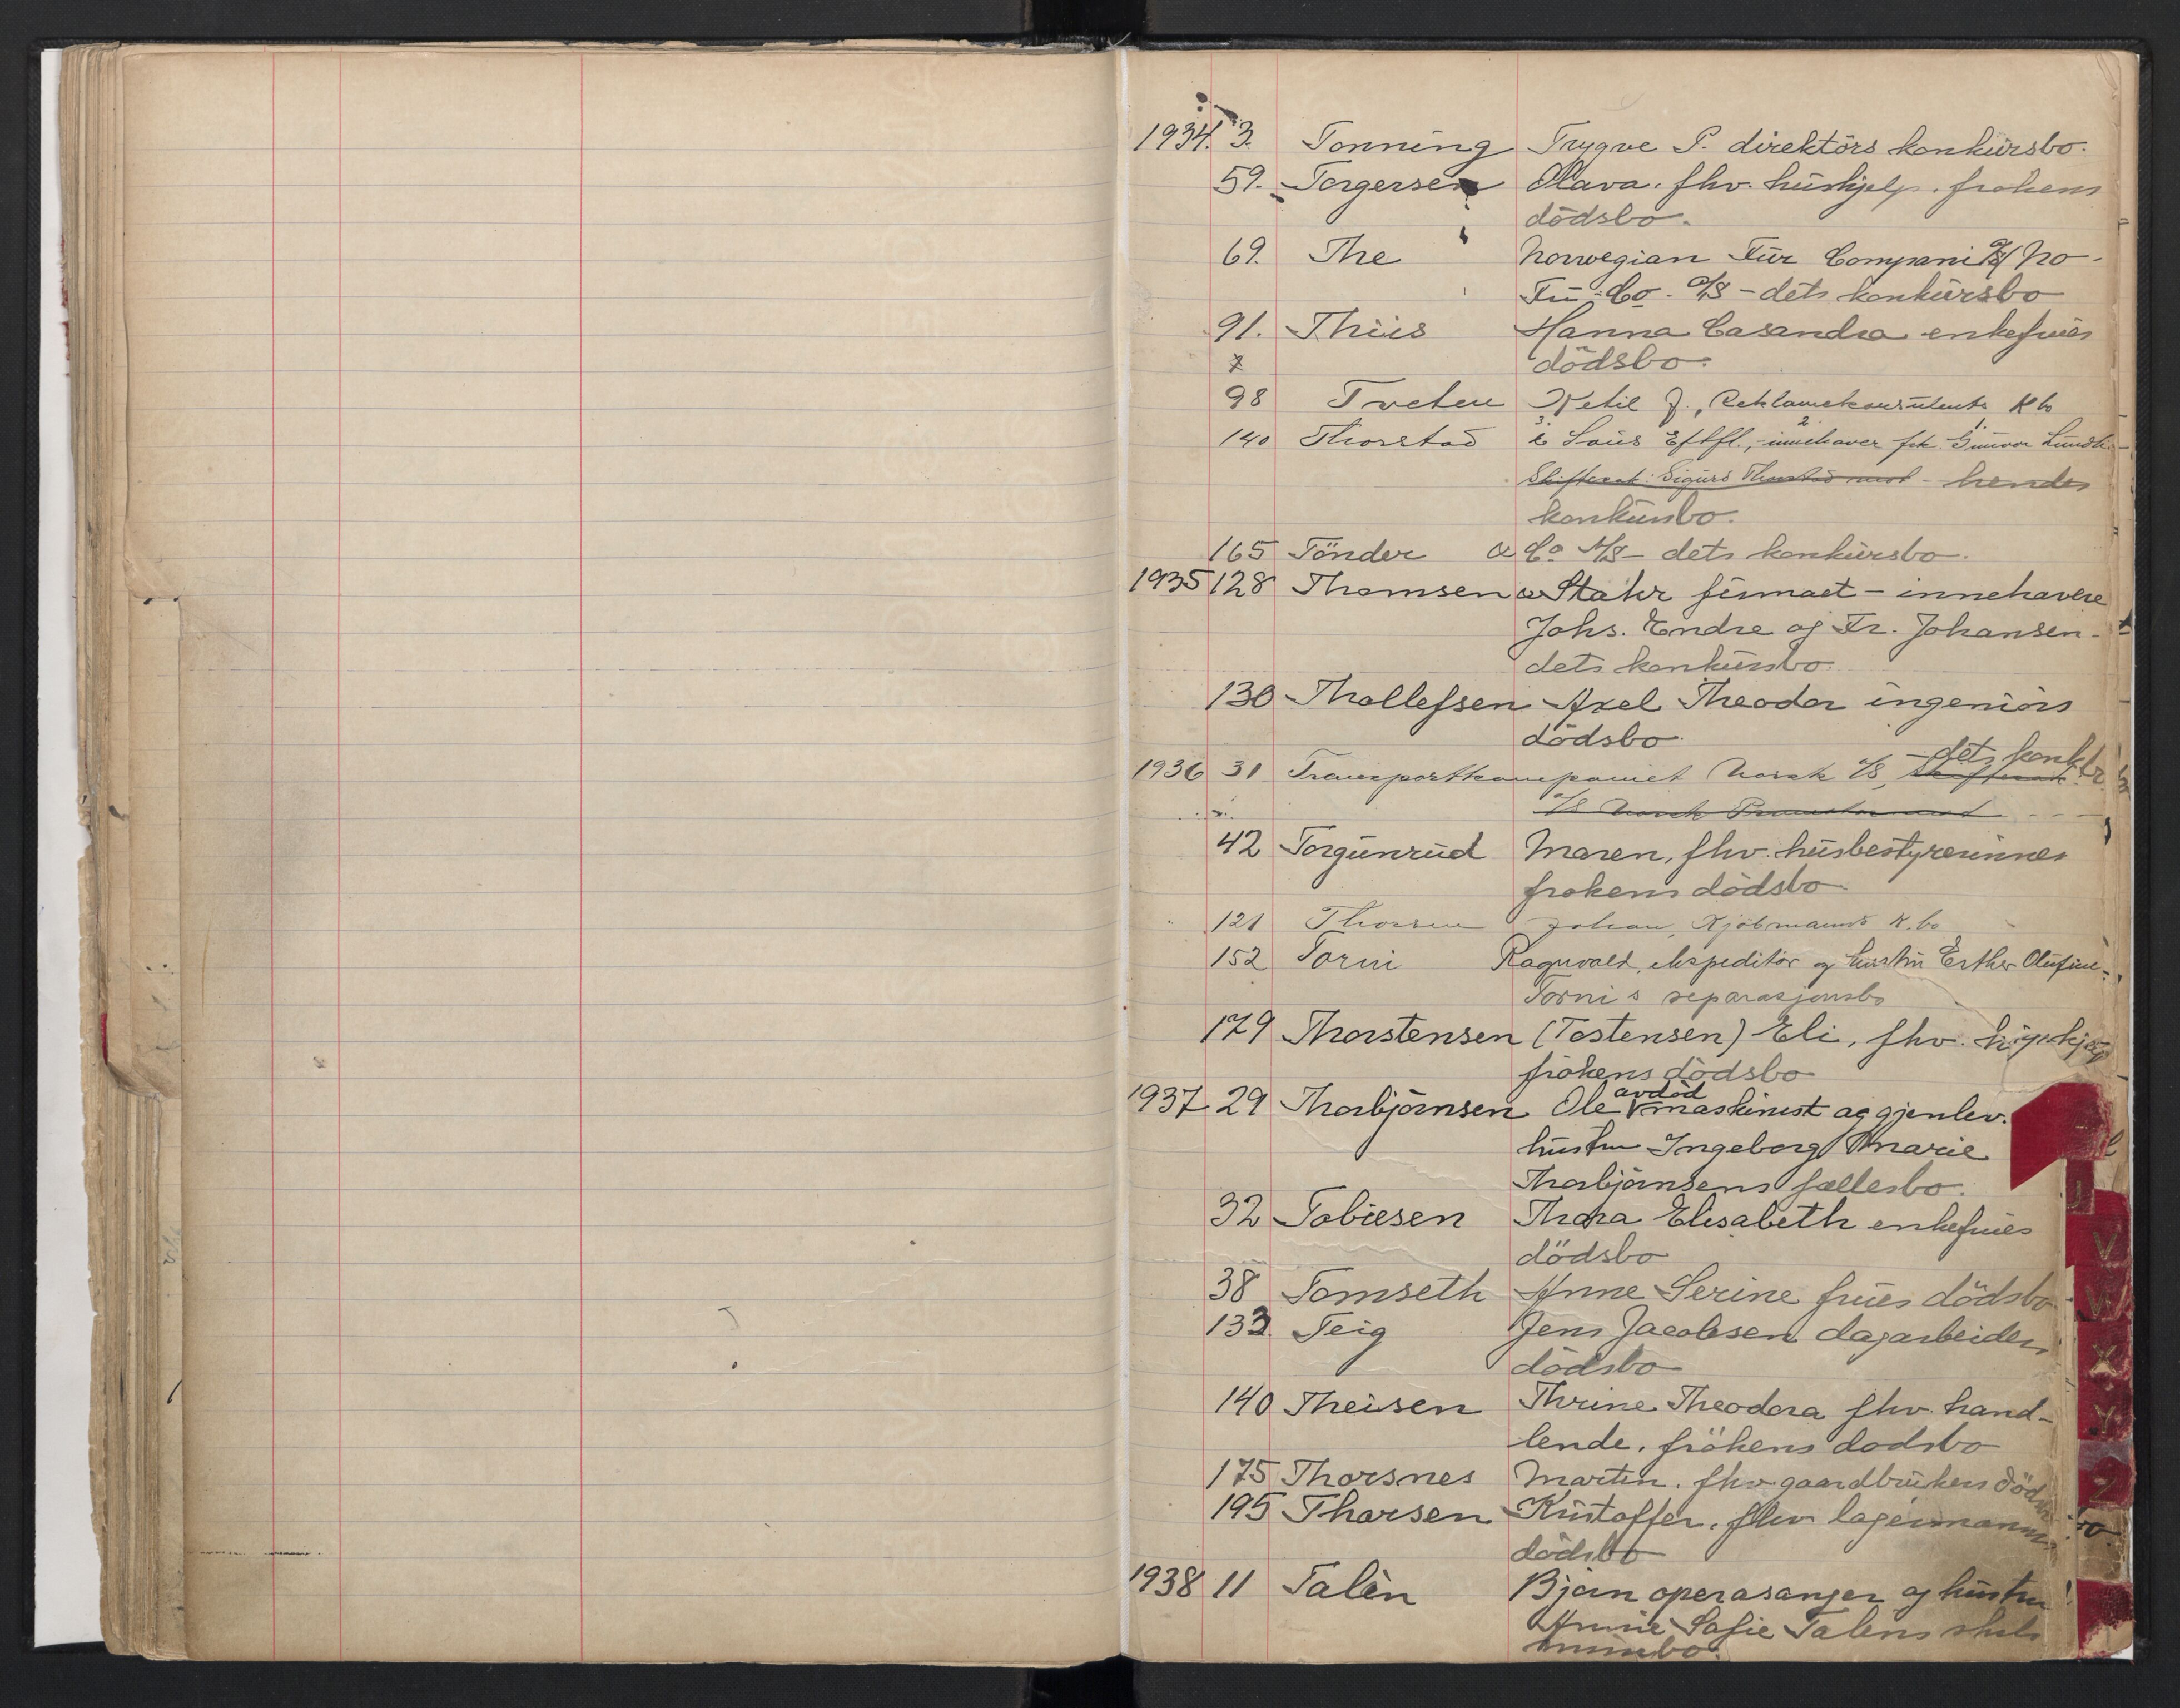 1934. 3. Tonning Trygve P. direktörs konkursbo.
59. Torgersen Olava. fhv. hushjelp. frøkens
dödsbo.
69. The Norwegian Fur Compani A/S No-
Fu-Co. A/S - dets konkursbo
91. Thiis Hanna Casandra enkefrues
dödsbo.
98 Tveten Ketil J., Reklamekonsulents K bo
140 Thorstad & Saus Eftfl., innehaver frk. Gunvor Lund
Sigurd Thorstad hendes
konkursbo.
165 Tönder & Co A/S - dets konkursbo.
1935 128 Thomsen & Stahr firmaet - innehavere
Johs. Endre og Fr. Johansen -
dets konkursbo.
130 Thollefsen Axel Theodor ingeniörs
dödsbo.
1936 31 Transportkompaniet Norsk A/S, - dets konk.
A/S Norsk
42 Torgunrud Maren, fhv. husbestyrerinnes
frøkens dödsbo.
121 Thorsen Johan, Kjöbmanns K. bo
152 Torni Ragnvald, ekspeditör og hustru Esther Olufine
Torni's separasjonsbo
179 Thorstensen (Tostensen) Eli, fhv.
frökens dödsbo
1937 29 Thorbjörnsen Ole avdöd maskinist og gjenlev.
hustru Ingeborg Marie
Thorbjörnsens fællesbo.
32 Tobiesen Thora Elisabeth enkefrues
dödsbo
38 Tomseth Anne Serine frues dödsbo
133 Teig Jens Jacobsen dagarbeiders
dödsbo
140 Theisen Thrine Theodora fhv. hand-
lende. frökens dodsbo
175 Thorsnes Martin. fhv. gaardbrukers dödsbo
195 Thorsen Kristoffer. fhv lagermanns
dödsbo
1938 11 Talén Bjørn operasanger og hustru
Sofie Taléns
V
W
X
Y
Z